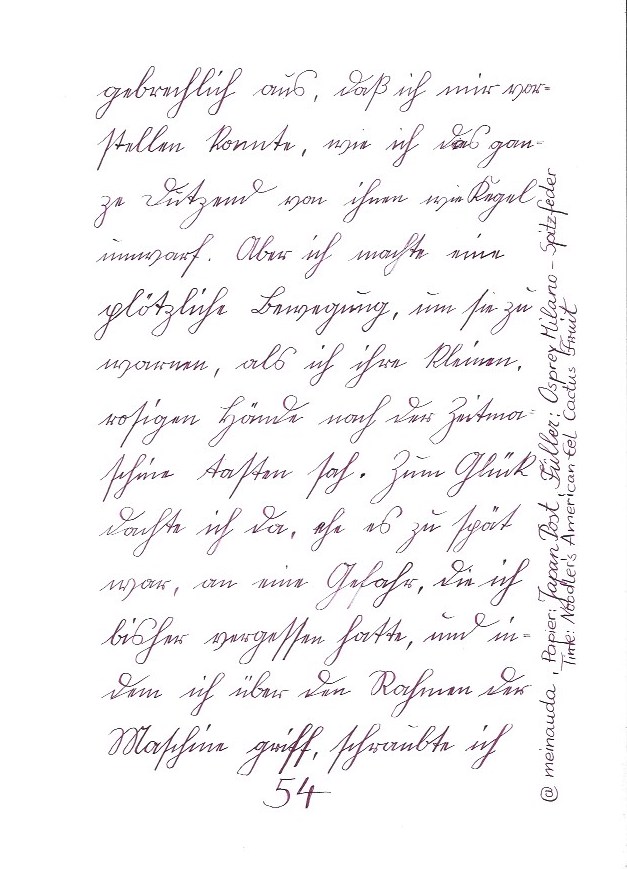 gebrechlich aus, daß ich mir vor=
stellen konnte, wie ich das gan=
ze Dutzend von ihnen wie Kegel
umwarf. Aber ich machte eine
plötzliche Bewegung, um sie zu
warnen, als ich ihre kleinen,
rosigen Hände nach der Zeitma=
schine tasten sah. Zum Glück
dachte ich da, ehe es zu spät
war, an eine Gefahr, die ich
bisher vergessen hatte, und in=
dem ich über den Rahmen der
Maschine griff, schraubte ich
54
@ meinauda, Papier: Japan Post, Füller: Osprey Milano - Spitzfeder
Tinte: Noodler's American eel Cactus Fruit